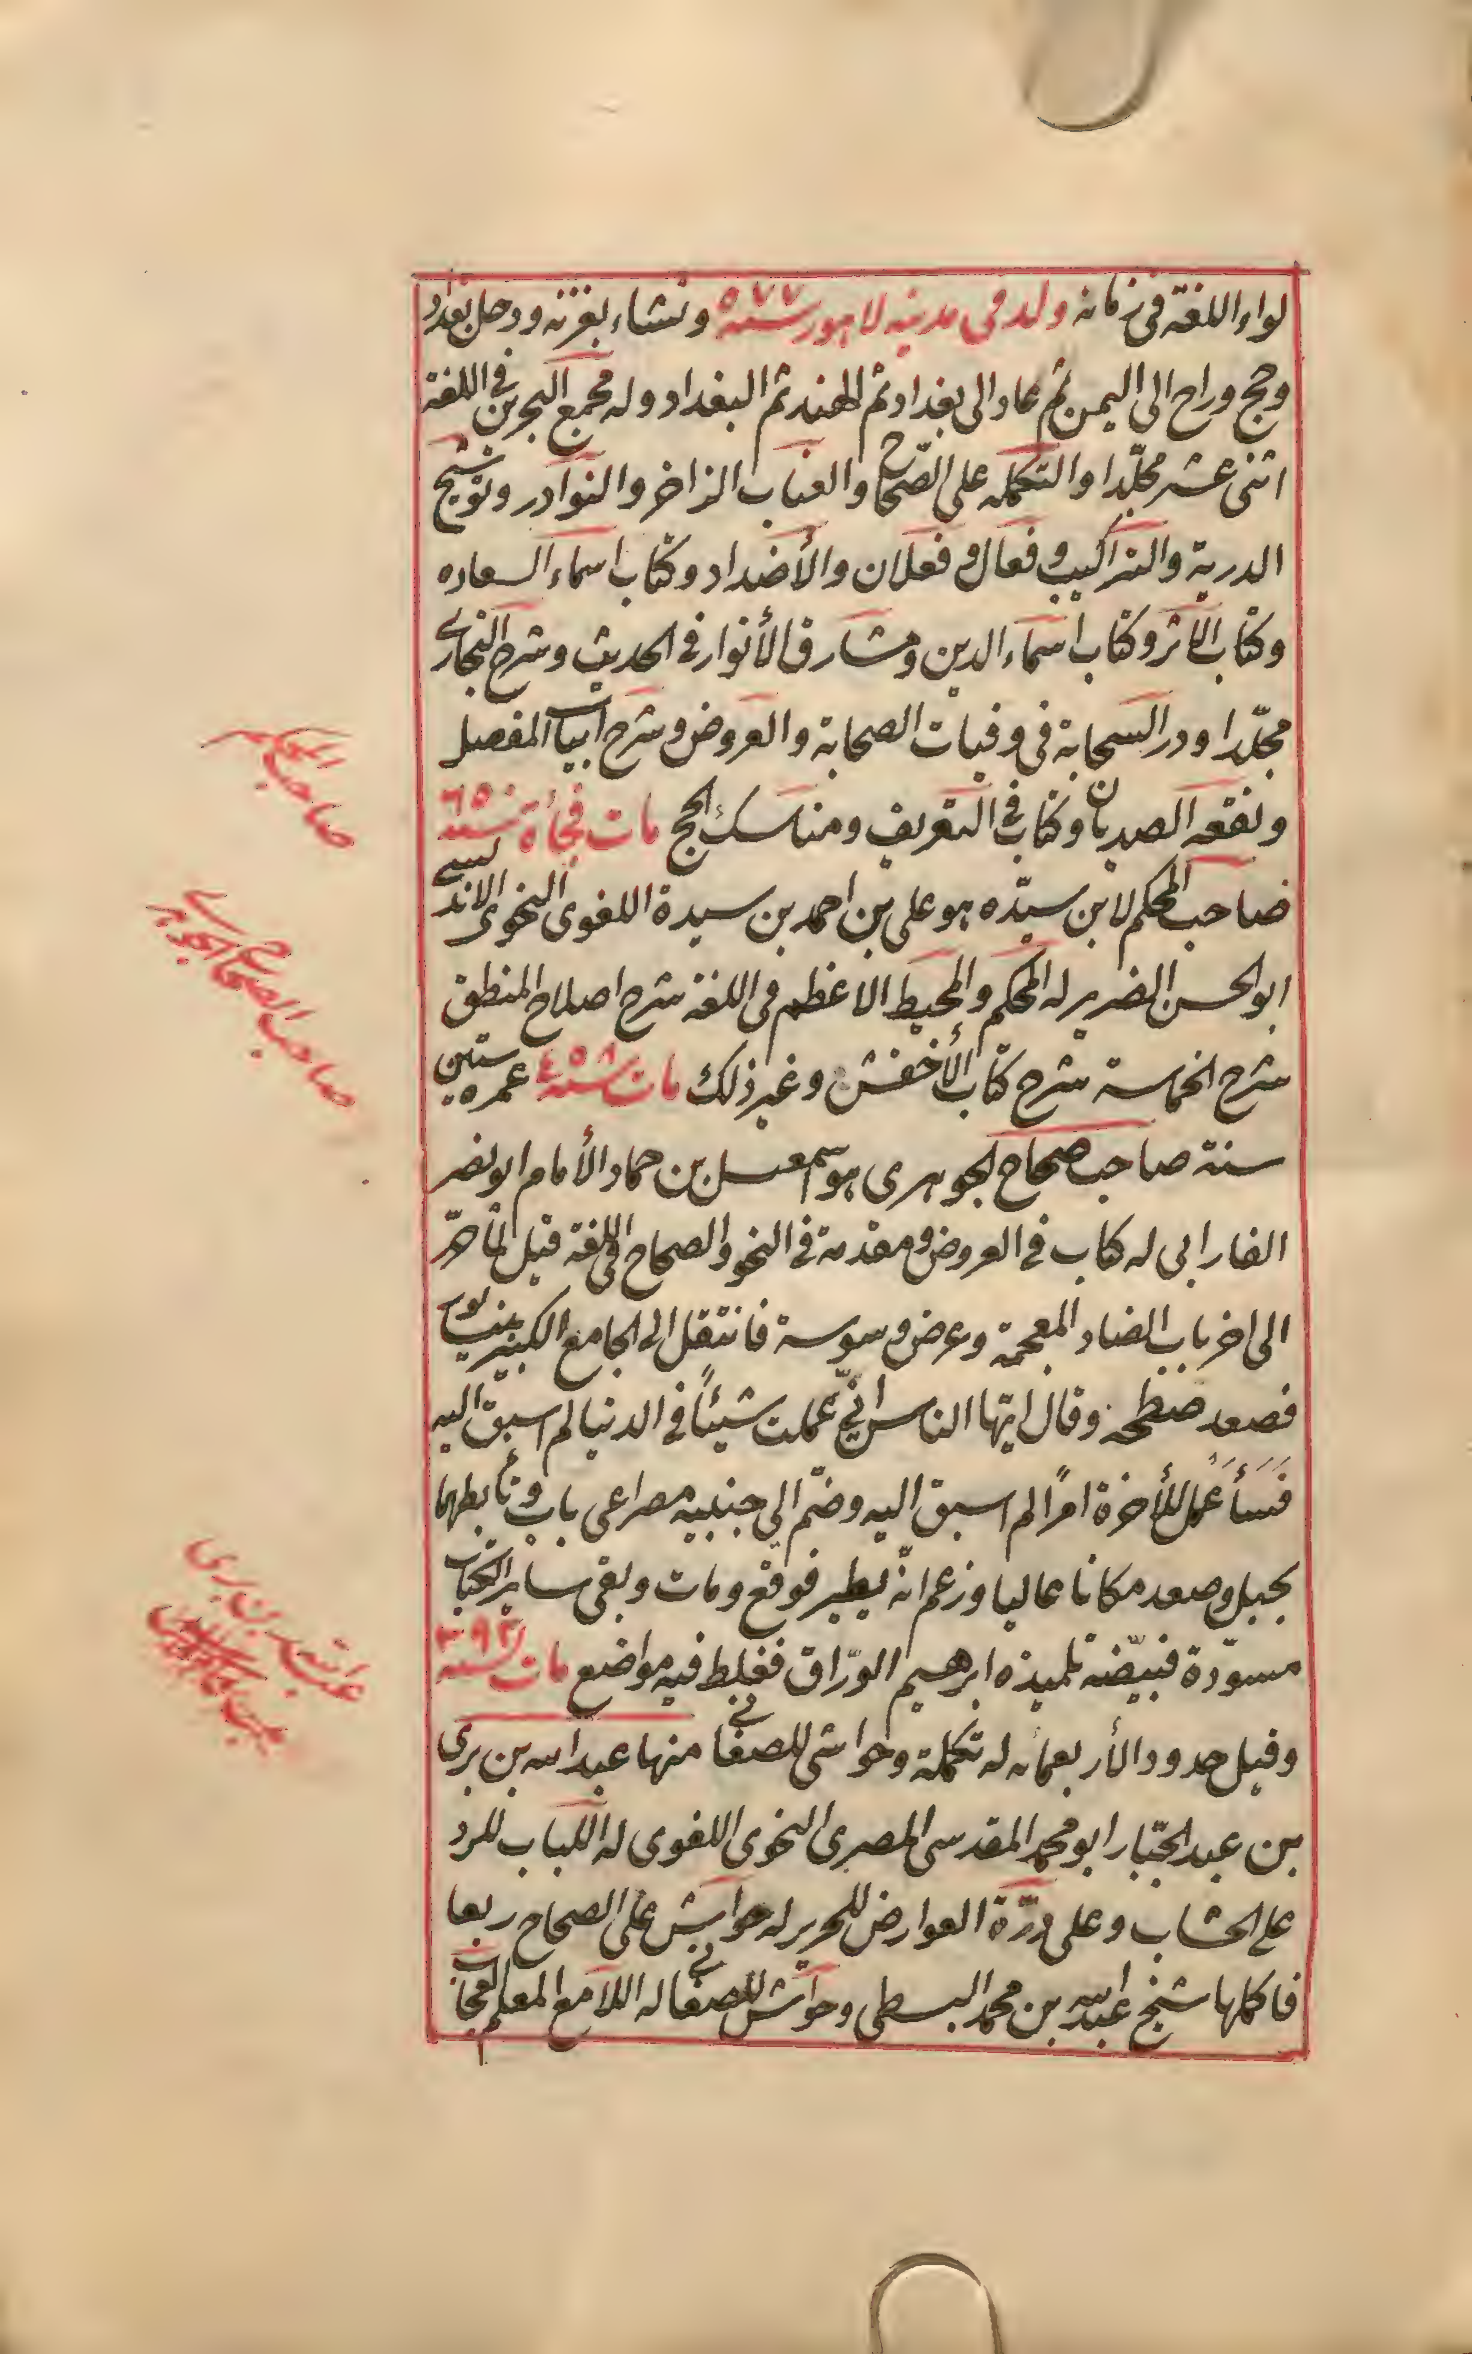 لواء اللغة في زمانه ولد في مدينة لاهور سنة ٥٧٧ ونشاء بغزنه ودخل بغداد
وحج وراح الى اليمن ثم عاد الى بغداد ثم الهند ثم البغداد وله مجمع البحرين في اللغة
اثنى عشر مجلّدا والتكمله على الصّحاح والعباب الزاخر والنوادر وتوشيح
الدرية والتراكيب وفعال وفعلان والأضداد وكتاب اسماء السعاده
وكتاب الاثر وكتاب اسماء الدين ومشارق الأنوار في الحديث وشرح البخاري
مجلّدا ودر السحابة في وفيات الصحابة والعروض وشرح ابيات المفصل
ونقعه الصديان وكتاب في التعريف ومناسك الحج مات فجأة سنة ٦٥٠
صاحب المحكم لابن سيّده هو على بن احمد بن سيدة اللغوى النحوى الاندلسي
ابو الحسن الضرير له المحكم والمحيط الاعظم في اللغة شرح اصلاح المنطق
شرح الحماسة شرح كتاب الأخفش وغير ذلك مات سنة ٤٥٨ عمره ستين
سنة صاحب صحاح الجوهرى هو اسمعيل بن حماد الأمام ابو نصر
الفارابى له كتاب في العروض ومقدمة في النحو والصحاح في اللغة قيل لمّا حرّر
الى اخر باب الضاد المعجمة وعرض وسوسة فانتقل الى الجامع الكبير بنيسابور
فصعد سطحه وقال ايّها الناس انّي عملت شيئاً في الدنيا لم اسبق اليه
فسأعمل للأخرة امرًا لم اسبق اليه وضمّ الى جنبيه مصراعى باب وتأبطهما
بحبل وصعد مكانا عاليا وزعم انّه يطير فوقع ومات وبقى ساير الكتاب
مسوّدة فبيّضه تلميذه ابرهيم الورّاق فغلط فيه مواضع مات سنة ٣٩٣
وقيل حدود الأربعمائه له تكملة وحواشى للصغانى منها عبد الله بن برى
بن عبد الجبّار ابو محمد المقدسى المصرى النحوى اللغوى له اللباب للرد
على الخشاب وعلى درّة العوارض للحرير له حواش على الصحاح ربعا
فاكملها شيخ عبد الله بن محمد البسطى وحواش للصغانى له اللامع المعلم العجاب
صاحب المحكم
صاحب الصحاح الجوهري
عبد الله بن برى